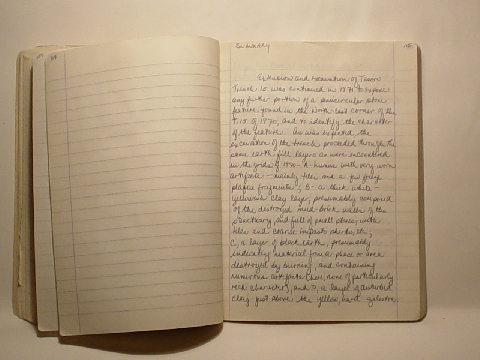 Summary
Extension and Excavation of Tower
Trench 10 was continued in 1971 to expose
any further portion of a semicircular stone
feature found in the North-east corner of the
T.15 of 1970, and to identify the character
of the feature. As was expected, the
excavation of the trench proceeded through the
same earth-fill layers as were encountered
in the grids of 1970 - A - humus with very worn
artifacts - mainly tiles and a few grey
plaque fragments; B - a thick white-
yellowish clay layer, presumably composed
of the destroyed mud-brick walls of the
Sanctuary, and full of small stones, with
tiles and coarse impasto sherds, etc.;
C, a layer of black earth, presumably
indicating material from a place or area
destroyed by burning, and containing
numerous artifacts there, none of particularly
rich character, and D, a layer of disturbed
clay just above the yellow, hard galestra